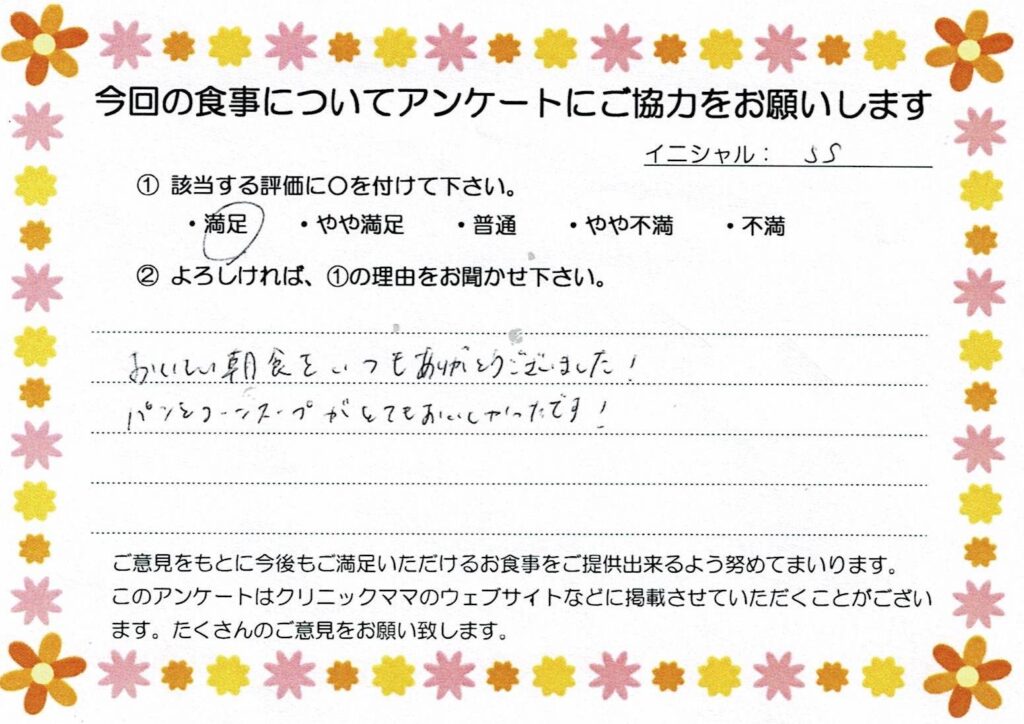 今回の食事についてアンケートにご協力をお願いします
イニシャル： SS
① 該当する評価に○を付けて下さい。
・満足 ・やや満足 ・普通 ・やや不満 ・不満
② よろしければ、①の理由をお聞かせ下さい。
おいしい朝食をいつもありがとうございました！
パンとコーンスープがとてもおいしかったです！
ご意見をもとに今後もご満足いただけるお食事をご提供出来るよう努めてまいります。
このアンケートはクリニックママのウェブサイトなどに掲載させていただくことがござい
ます。たくさんのご意見をお願い致します。